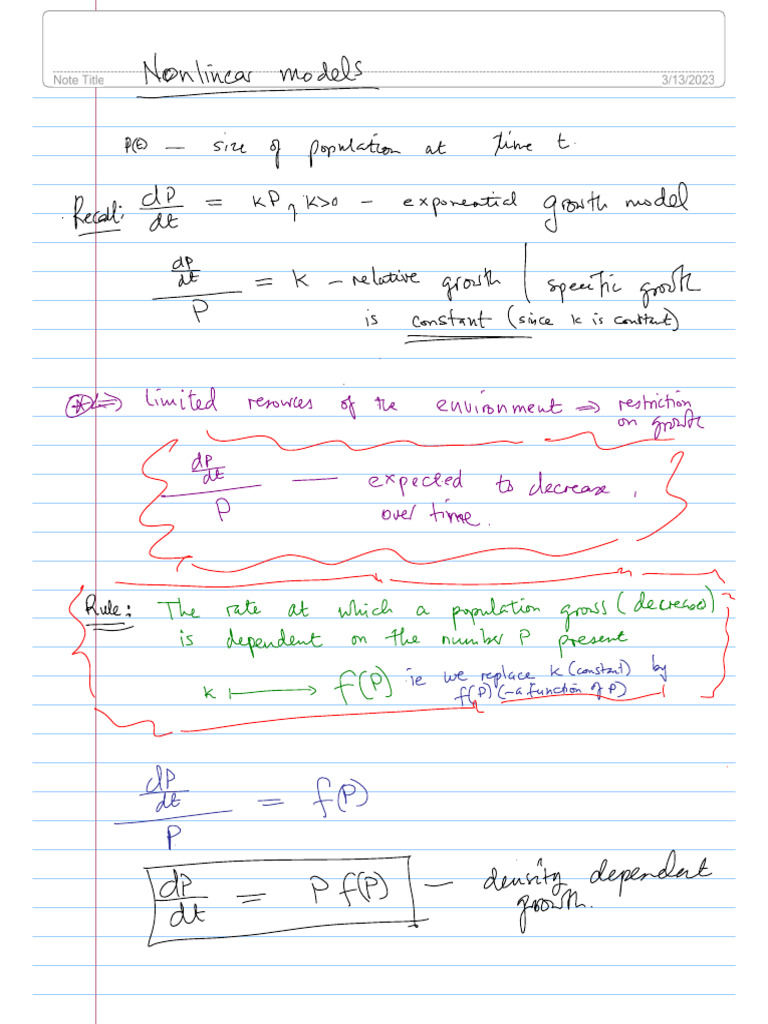 Nonlinear models
Note Title
3/13/2023
P(t) — size of population at time t.
Recall: dP/dt = kP, k>0 — exponential growth model
(dP/dt)/P = k — relative growth | specific growth
is constant (since k is constant)
⊛ ⇔ limited resources of the environment ⇒ restriction
on growth
(dP/dt)/P — expected to decrease
over time.
Rule: The rate at which a population grows (decreases)
is dependent on the number P present
k ↦ f(P) ie we replace k (constant) by
f(P) (- a function of P)
(dP/dt)/P = f(P)
dP/dt = P f(P) — density dependent
growth.